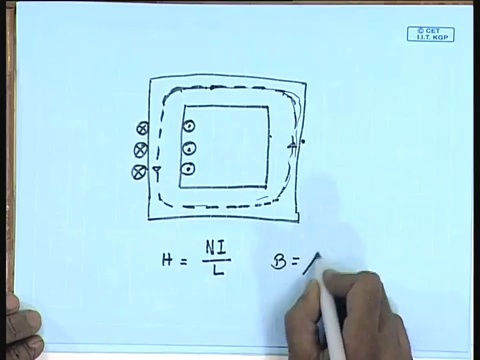 © CET
I.I.T. KGP
H = NI / L B =